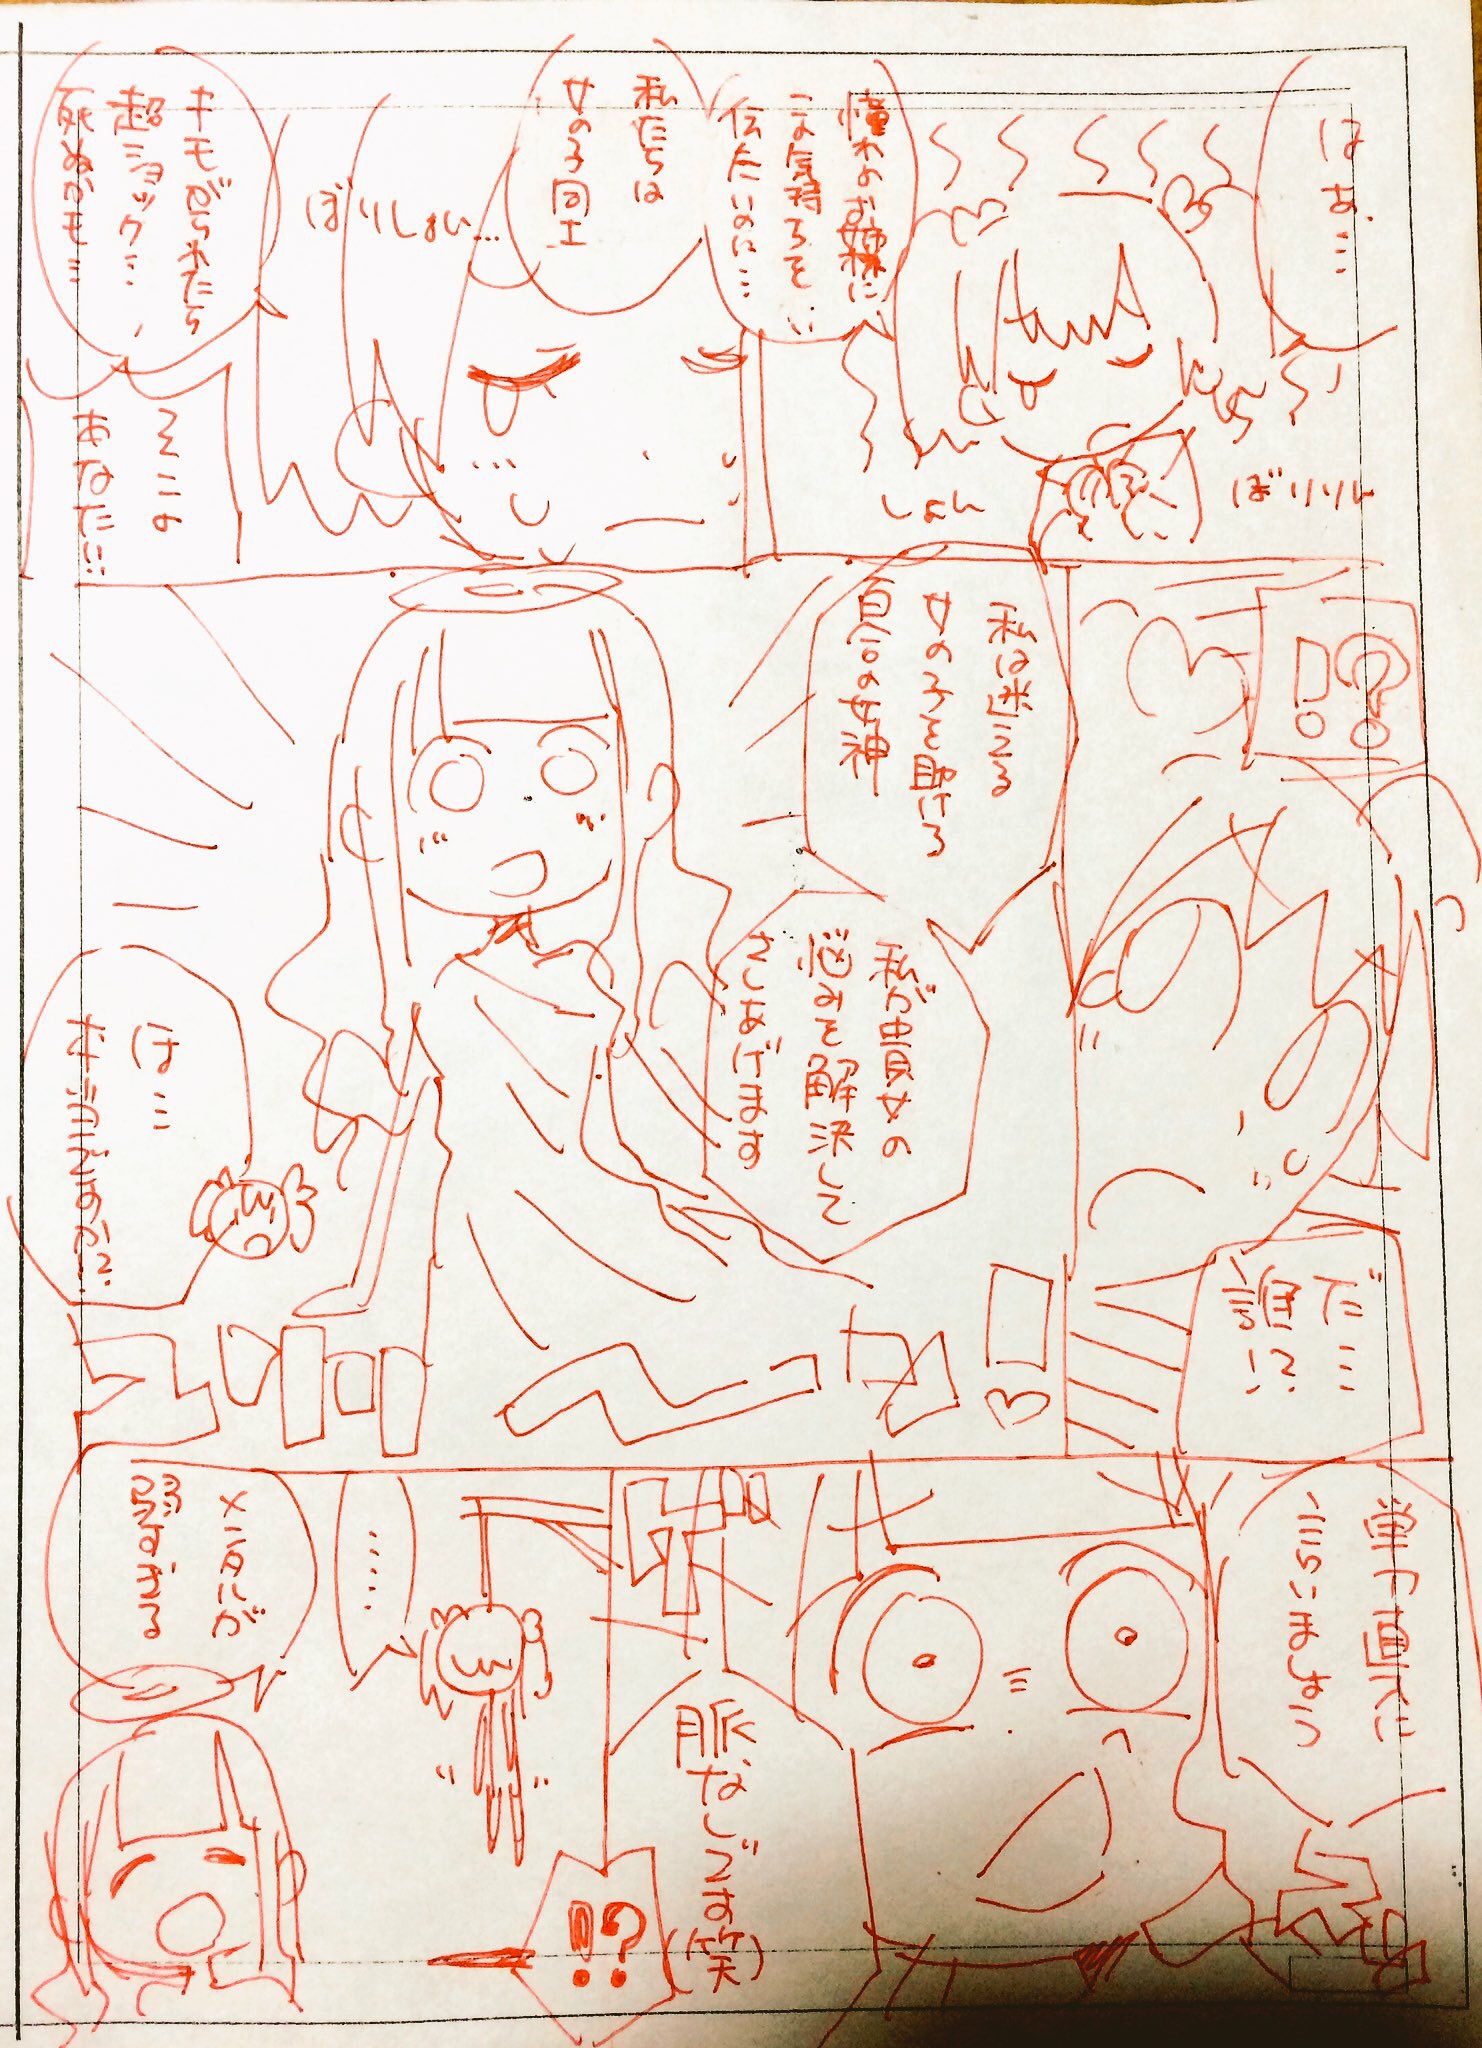 はあ…
憧れのお姉様に
この気持ちを
伝えたいのに…
ぼりりん
しょん
私たちは
女の子同士
ぼりしょん…
キモがられたら
超ショック…、
死ぬかも…
そこの
あなた…
!?
だ…
誰!?
私は迷える
女の子を助ける
百合の女神
私が貴女の
悩みを解決して
さしあげます
は…
単刀直入に
言いましょう
脈なしです
(笑)
!?
……
メンタルが